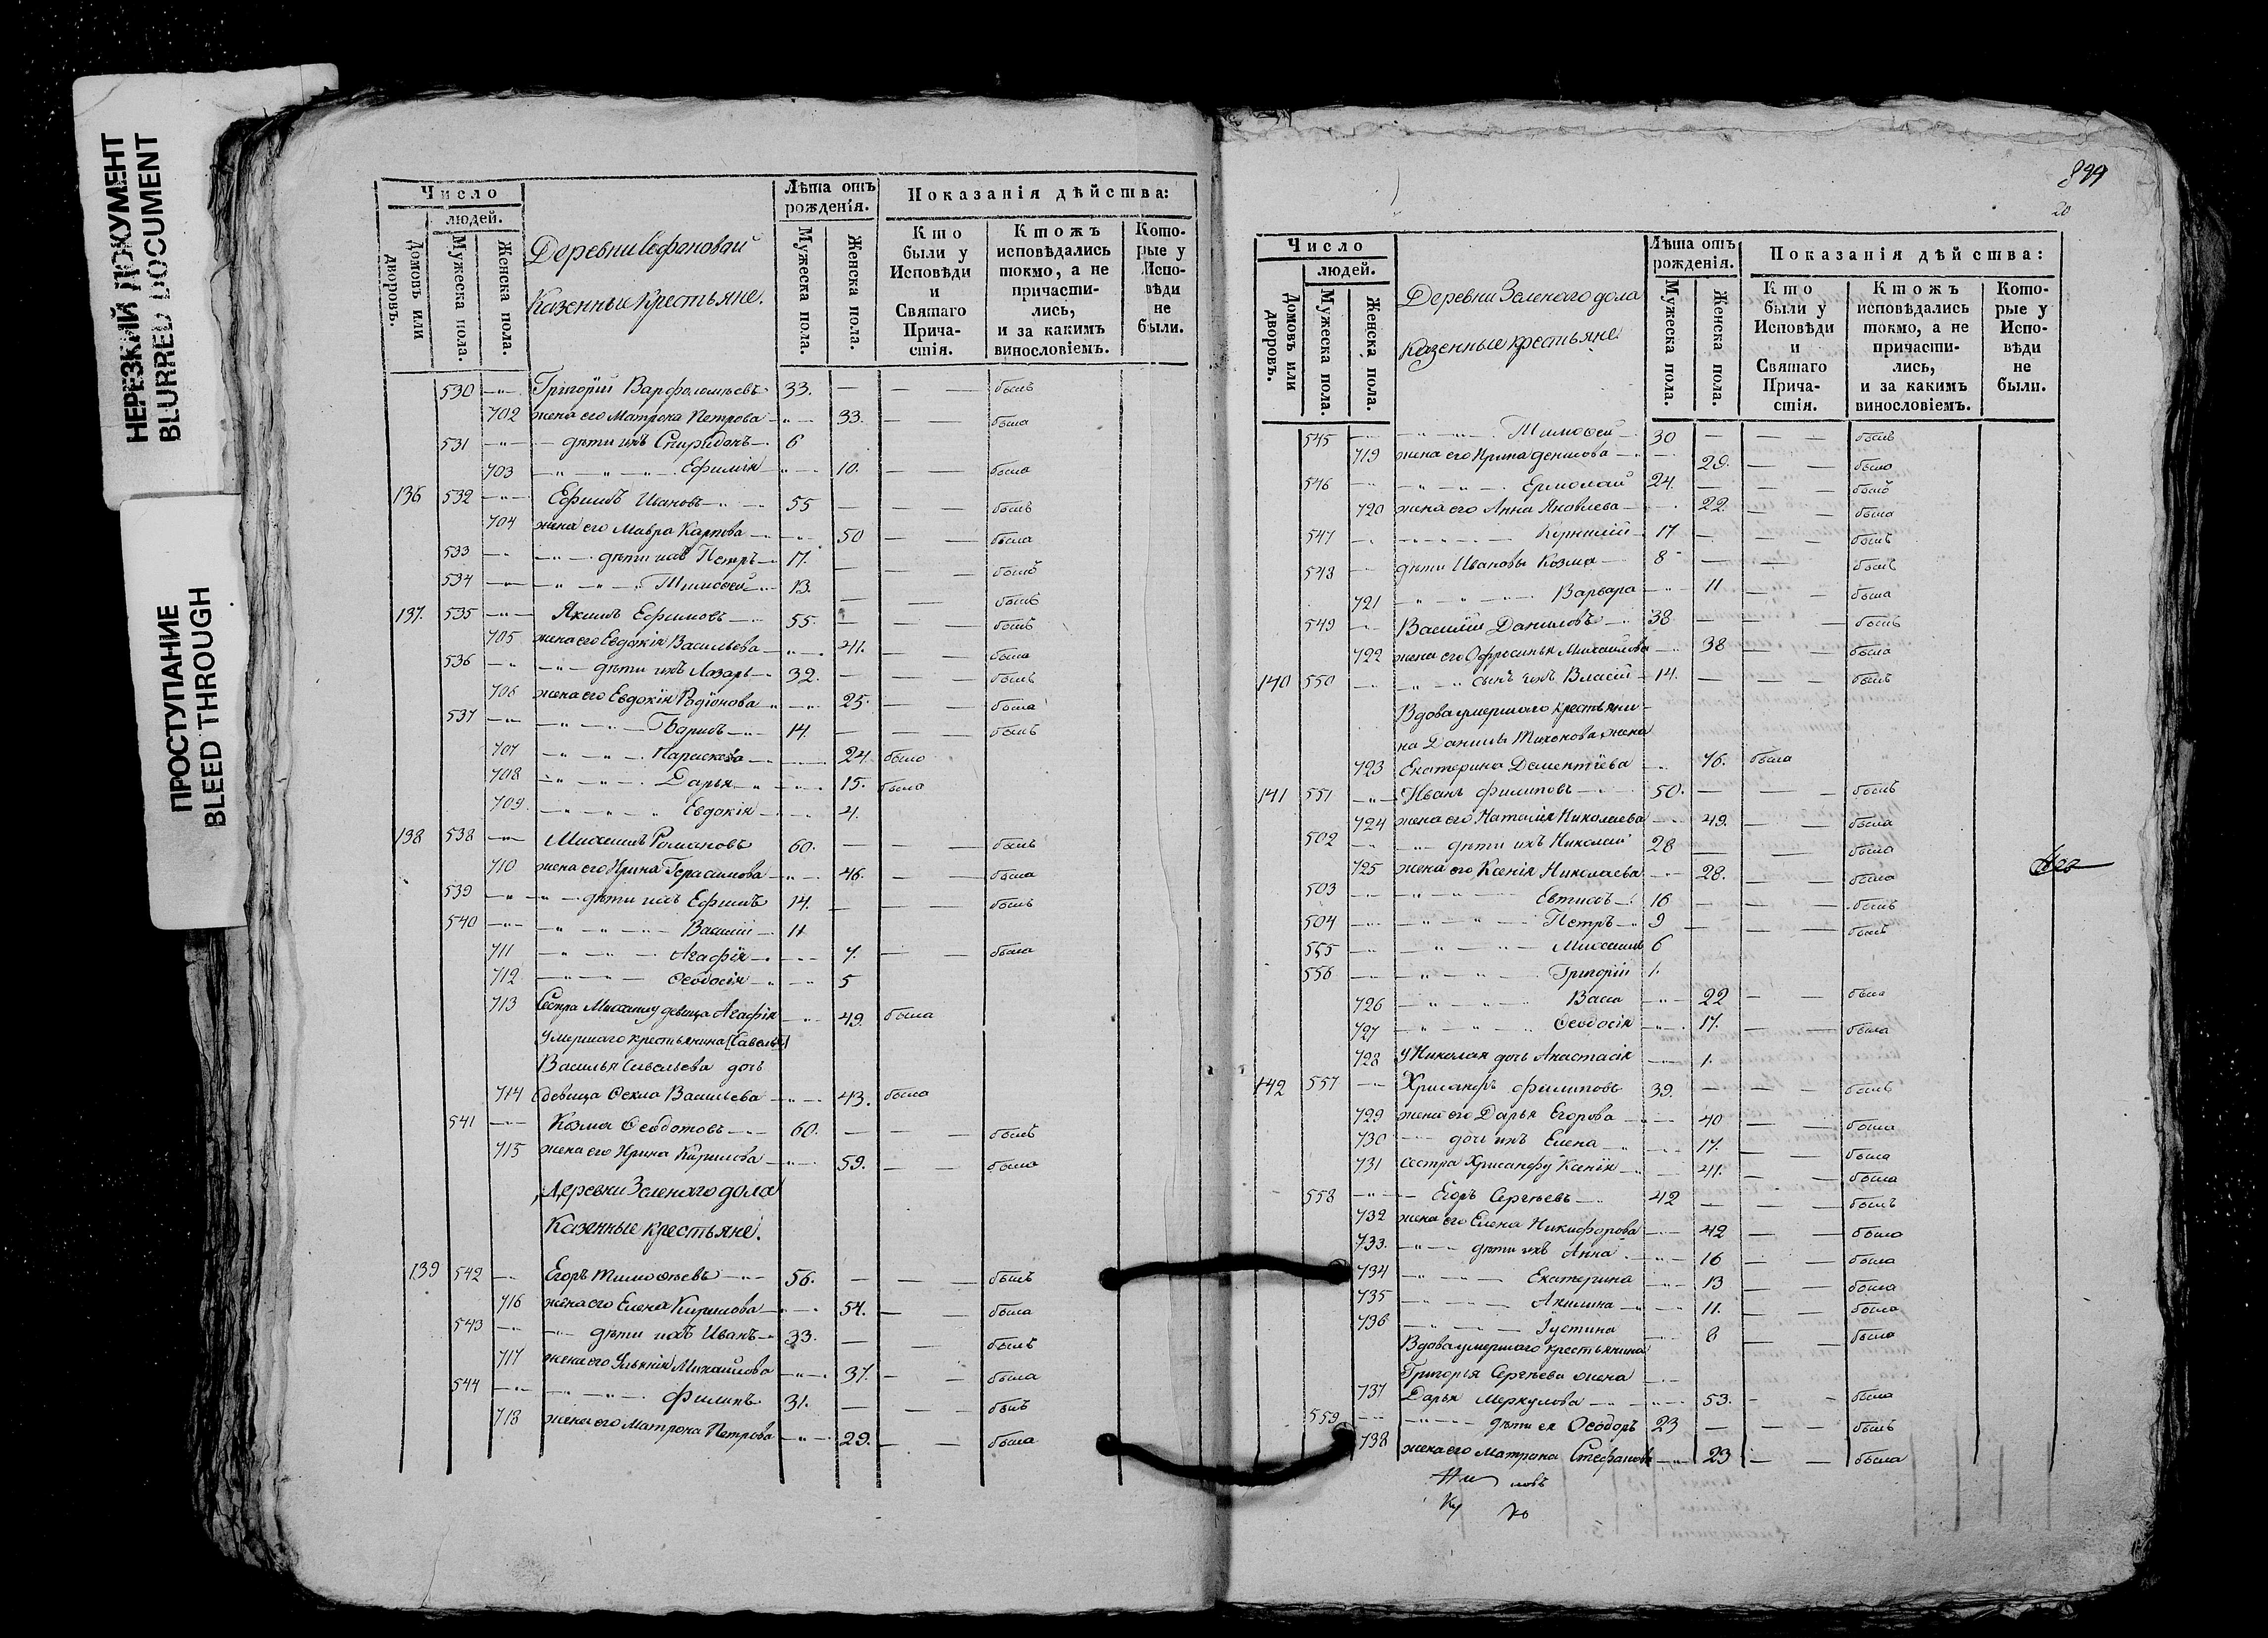 НЕРЕЗКИЙ ДОКУМЕНТ
BLURRED DOCUMENT
ПРОСТУПАНИЕ
BLEED THROUGH
Число
людей.
Домовъ или дворовъ.
Мужеска пола.
Женска пола.
Деревни
Казенные Крестьяне.
Лѣта отъ рожденія.
Мужеска пола.
Женска пола.
Показанія дѣйства:
Кто были у Исповѣди и Святаго Причастія.
Ктожъ исповѣдались токмо, а не причастились, и за какимъ винословіемъ.
Которые у Исповѣди не были.
530 Григорій Варфоломѣевъ 33. былъ
702 жена его Матрона Петрова 33. была
531 дѣти ихъ Спиридонъ 6
703 Ефимія 10. была
136 532 Ефимъ Ивановъ 55 былъ
704 жена его Мавра Карпова 50 была
533 дѣти ихъ Петръ 17. былъ
534 Тимоѳей 13. былъ
137. 535 Якимъ Ефимовъ 55. былъ
705 жена его Евдокія Васильева 41. была
536 дѣти ихъ Лазарь 32. былъ
706 жена его Евдокія Родіонова 25. была
537 14. былъ
707 Параскева 24 была
708 Дарья 15. была
709. Евдокія 4.
138 538 Михаилъ Романовъ 60. былъ
710 жена его Ирина Герасимова 46. была
539 дѣти ихъ Ефимъ 14. былъ
540 Василій 11
711 Агафія 7. была
712 Ѳеодосія 5
713 Сестра Михаилу девица Агафія 49. была
Умершаго крестьянина
Василья Савельева дочь
714 девица Ѳекла Васильева 43. была
541 Козма Ѳеодотовъ 60. былъ
715 жена его Ирина Кирилова 59. была
Деревни Зеленаго дола
Казенные крестьяне.
139 542 Егоръ Тимоѳѣевъ 56. былъ
716 жена его Елена Кирилова 54. была
543 дѣти ихъ Иванъ 33. былъ
717 жена его Ульянія Михайлова 37. была
544 Филипъ 31. былъ
718 жена его Матрона Петрова 29. была
899
20
Число
людей.
Домовъ или дворовъ.
Мужеска пола.
Женска пола.
Деревни Зеленаго дола
Казенные крестьяне
Лѣта отъ рожденія.
Мужеска пола.
Женска пола.
Показанія дѣйства:
Кто были у Исповѣди и Святаго Причастія.
Ктожъ исповѣдались токмо, а не причастились, и за какимъ винословіемъ.
Которые у Исповѣди не были.
545 Тимоѳей 30 былъ
719 жена его Ирина Денисова 29. была
546 Ермолай 24. былъ
720 жена его Анна Яковлева 22. была
547 17 былъ
548 дѣти Ивановы Козма 8 былъ
721 Варвара 11 была
549 Василій Даниловъ 38. былъ
722 жена его Офросинья Михайлова 38 была
140 550 сынъ ихъ Власій 14. былъ
Вдова умершаго крестьяни-
на Данилы Тихонова жена
723 Екатерина Дементіева 76. была
141 551 Иванъ Филиповъ 50. былъ
724 жена его Наталія Николаева 49. была
502 дѣти ихъ Николай 28 была
725 жена его Ксенія Николаева 28. была
503 Евтихъ 16 былъ
504 Петръ 9 былъ
555 Михаилъ 6
556 Григорій 1.
726 Васса 22 была
727 Ѳеодосія 17. была
728 У Николая дочь Анастасія 1.
142 557 Хрисанфъ Филиповъ 39. былъ
729 жена его Дарья Егорова 40 была
730 дочь ихъ Елена 17. была
731 Сестра Хрисанфу Ксенія 41. была
558 Егоръ Сергѣевъ 42 былъ
732 жена его Елена Никифорова 42 была
733. дѣти ихъ Анна 16 была
734 Екатерина 13 была
735 Акилина 11. была
736 Іустина 8 была
Вдова умершаго крестьянина
Григорья Сергѣева жена
737 Дарья Меркулова 53. была
559 дѣти ея Ѳеодоръ 23 былъ
738 жена его Матрона Стефанова 23 была